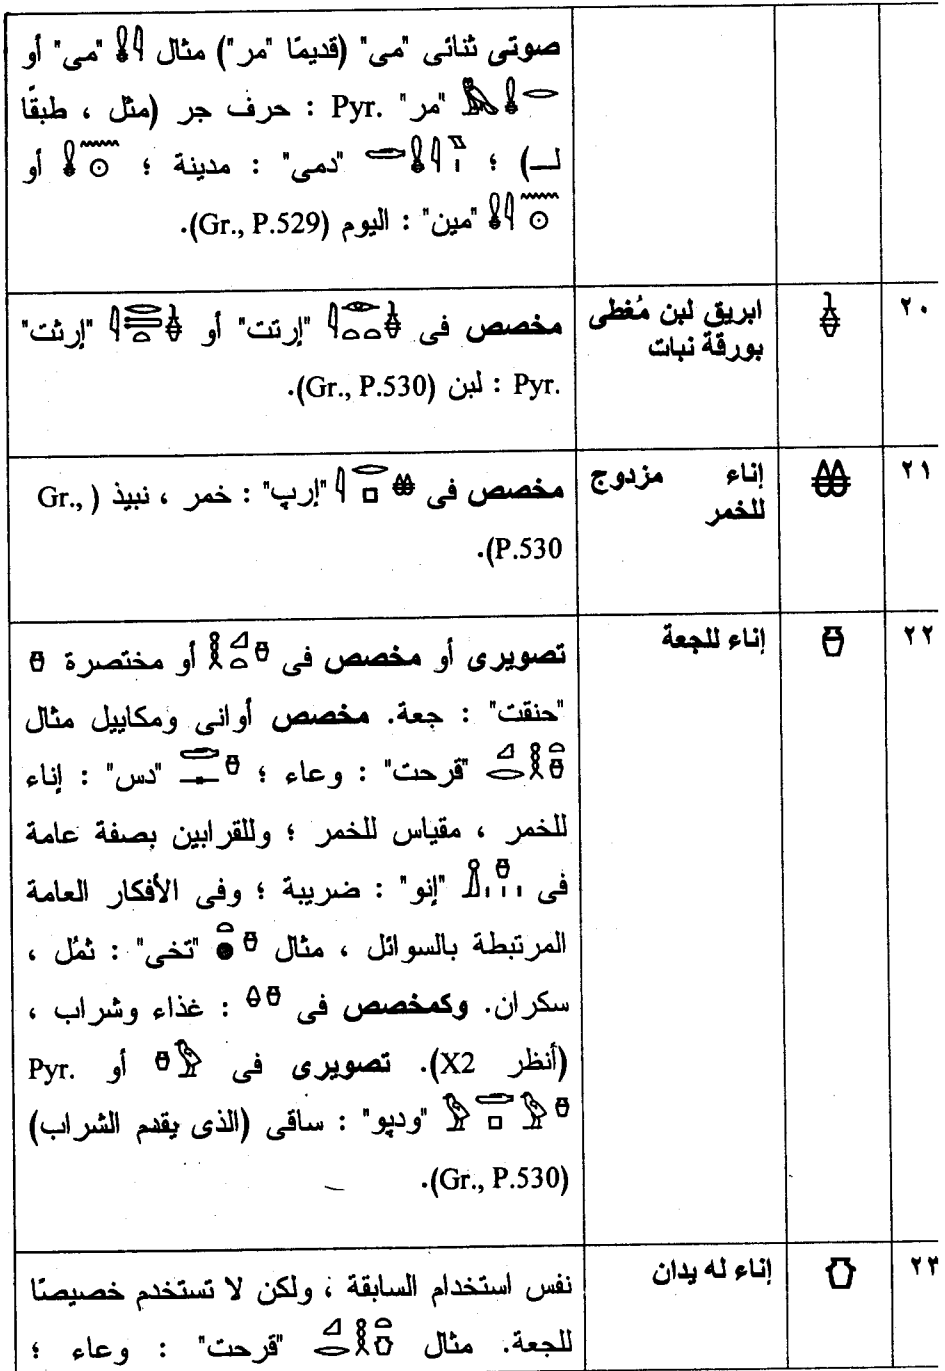 صوتى ثنائى "مى" (قديمًا "مر") مثال 𓇋𓏇 "مى" أو
𓏇𓂋𓅓 "مر" Pyr. : حرف جر (مثل ، طبقًا
لـ) ؛ "دمى" : مدينة ؛ أو
"مين" : اليوم (Gr., P.529).
٢٠
ابريق لبن مُغطى
بورقة نبات
مخصص فى "إرتت" أو "إرثت"
Pyr. : لبن (Gr., P.530).
٢١
إناء مزدوج
للخمر
مخصص فى "إرپ" : خمر ، نبيذ (Gr.,
P.530).
٢٢
𓏊
إناء للجعة
تصويرى أو مخصص فى أو مختصرة 𓏊
"حنقت" : جعة. مخصص أوانى ومكاييل مثال
"قرحت" : وعاء ؛ "دس" : إناء
للخمر ، مقياس للخمر ؛ وللقرابين بصفة عامة
فى "إنو" : ضريبة ؛ وفى الأفكار العامة
المرتبطة بالسوائل ، مثال "تخى" : ثمُل ،
سكران. وكمخصص فى : غذاء وشراب ،
(أنظر X2). تصويرى فى أو Pyr.
"ودپو" : ساقى (الذى يقدم الشراب)
(Gr., P.530).
٢٣
إناء له يدان
نفس استخدام السابقة ، ولكن لا تستخدم خصيصًا
للجعة. مثال "قرحت" : وعاء ؛